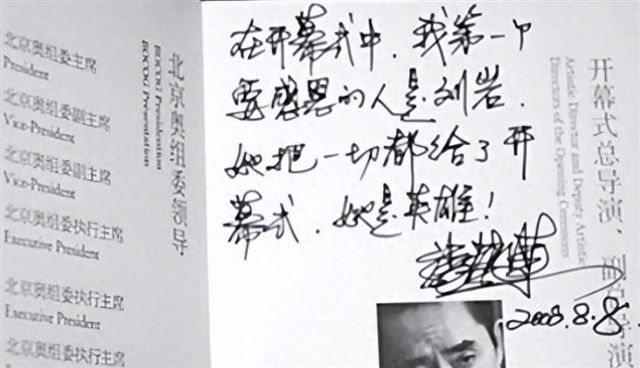 北京奥组委主席
President
北京奥组委副主席
Vice-President
北京奥组委副主席
Vice-President
北京奥组委执行主席
Executive President
北京奥组委执行主席
Executive President
北京奥组委执行主席
北京奥组委领导
BOCOG Presidentation
BOCOG Presentation
在开幕式中，我第一个
要感恩的人是刘岩．
她把一切都给了开
幕式．她是英雄！
2008.8.8.
开幕式总导演、副总导演
Artistic Director and Deputy Artistic
Directors of the Opening Ceremony